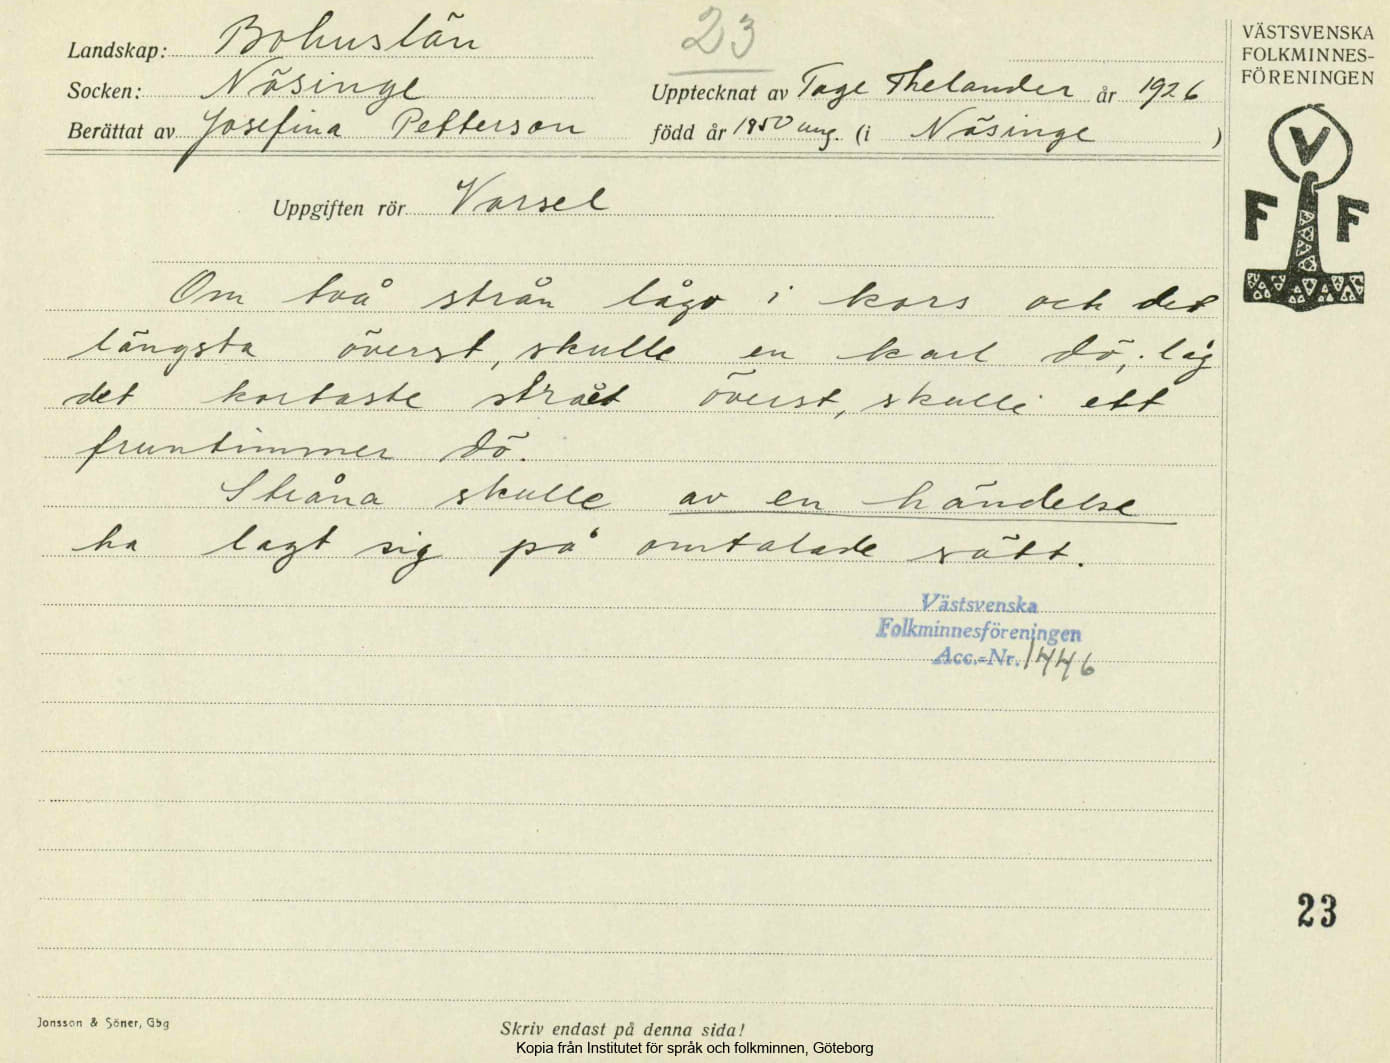 Landskap: Bohuslän
23
VÄSTSVENSKA
FOLKMINNES-
FÖRENINGEN
Socken: Näsinge
Upptecknat av Tage Thelander år 1926
Berättat av Josefina Petterson
född år 1850 ung. (i Näsinge )
V
F F
Uppgiften rör Varsel
Om två strån lågo i kors och det
längsta överst, skulle en karl dö, låg
det kortaste strået överst, skulle ett
fruntimmer dö.
Stråna skulle av en händelse
ha lagt sig på omtalade sätt.
Västsvenska
Folkminnesföreningen
Acc.-Nr. 1446
23
Jonsson & Söner, Gbg
Skriv endast på denna sida!
Kopia från Institutet för språk och folkminnen, Göteborg